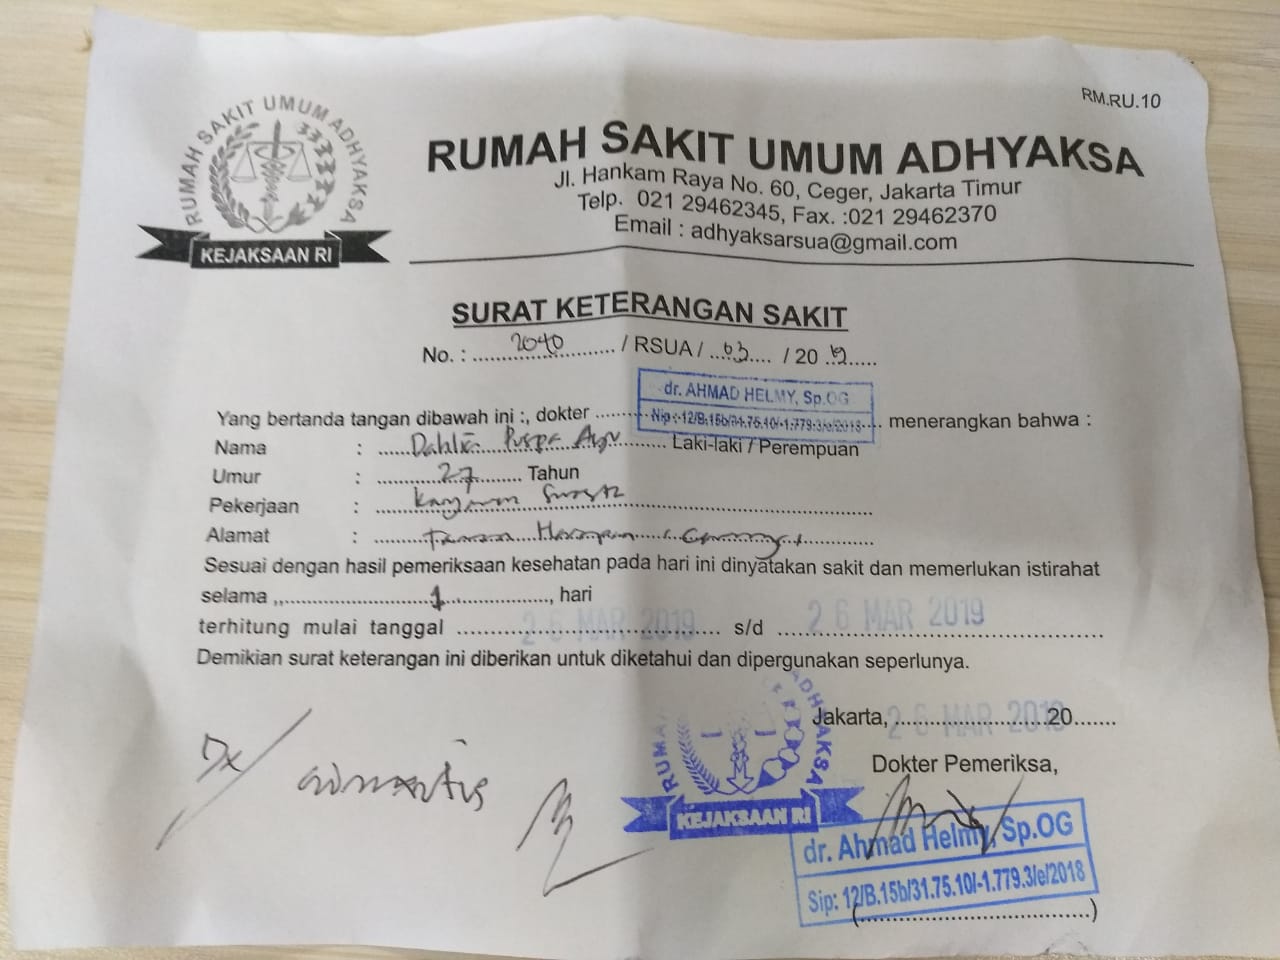 RM.RU.10
RUMAH SAKIT UMUM ADHYAKSA
KEJAKSAAN RI
RUMAH SAKIT UMUM ADHYAKSA
Jl. Hankam Raya No. 60, Ceger, Jakarta Timur
Telp. 021 29462345, Fax. :021 29462370
Email : adhyaksarsua@gmail.com
SURAT KETERANGAN SAKIT
No. : 2040 / RSUA / 03 / 2019
dr. AHMAD HELMY, Sp.OG
Yang bertanda tangan dibawah ini :, dokter menerangkan bahwa :
12/B.15b/31.75.10/-1.779.3/e/2018
Nama : Dahlia Puspa Ayu Laki-laki / Perempuan
Umur : 27 Tahun
Pekerjaan :
Alamat : Taman Harapan
Sesuai dengan hasil pemeriksaan kesehatan pada hari ini dinyatakan sakit dan memerlukan istirahat
selama ,, 1 , hari
terhitung mulai tanggal 26 MAR 2019 s/d 26 MAR 2019
Demikian surat keterangan ini diberikan untuk diketahui dan dipergunakan seperlunya.
Jakarta, 26 MAR 2019 20
Dokter Pemeriksa,
Dx/
RUMA ADHYAKSA
KEJAKSAAN RI
dr. Ahmad Helmy, Sp.OG
Sip: 12/B.15b/31.75.10/-1.779.3/e/2018